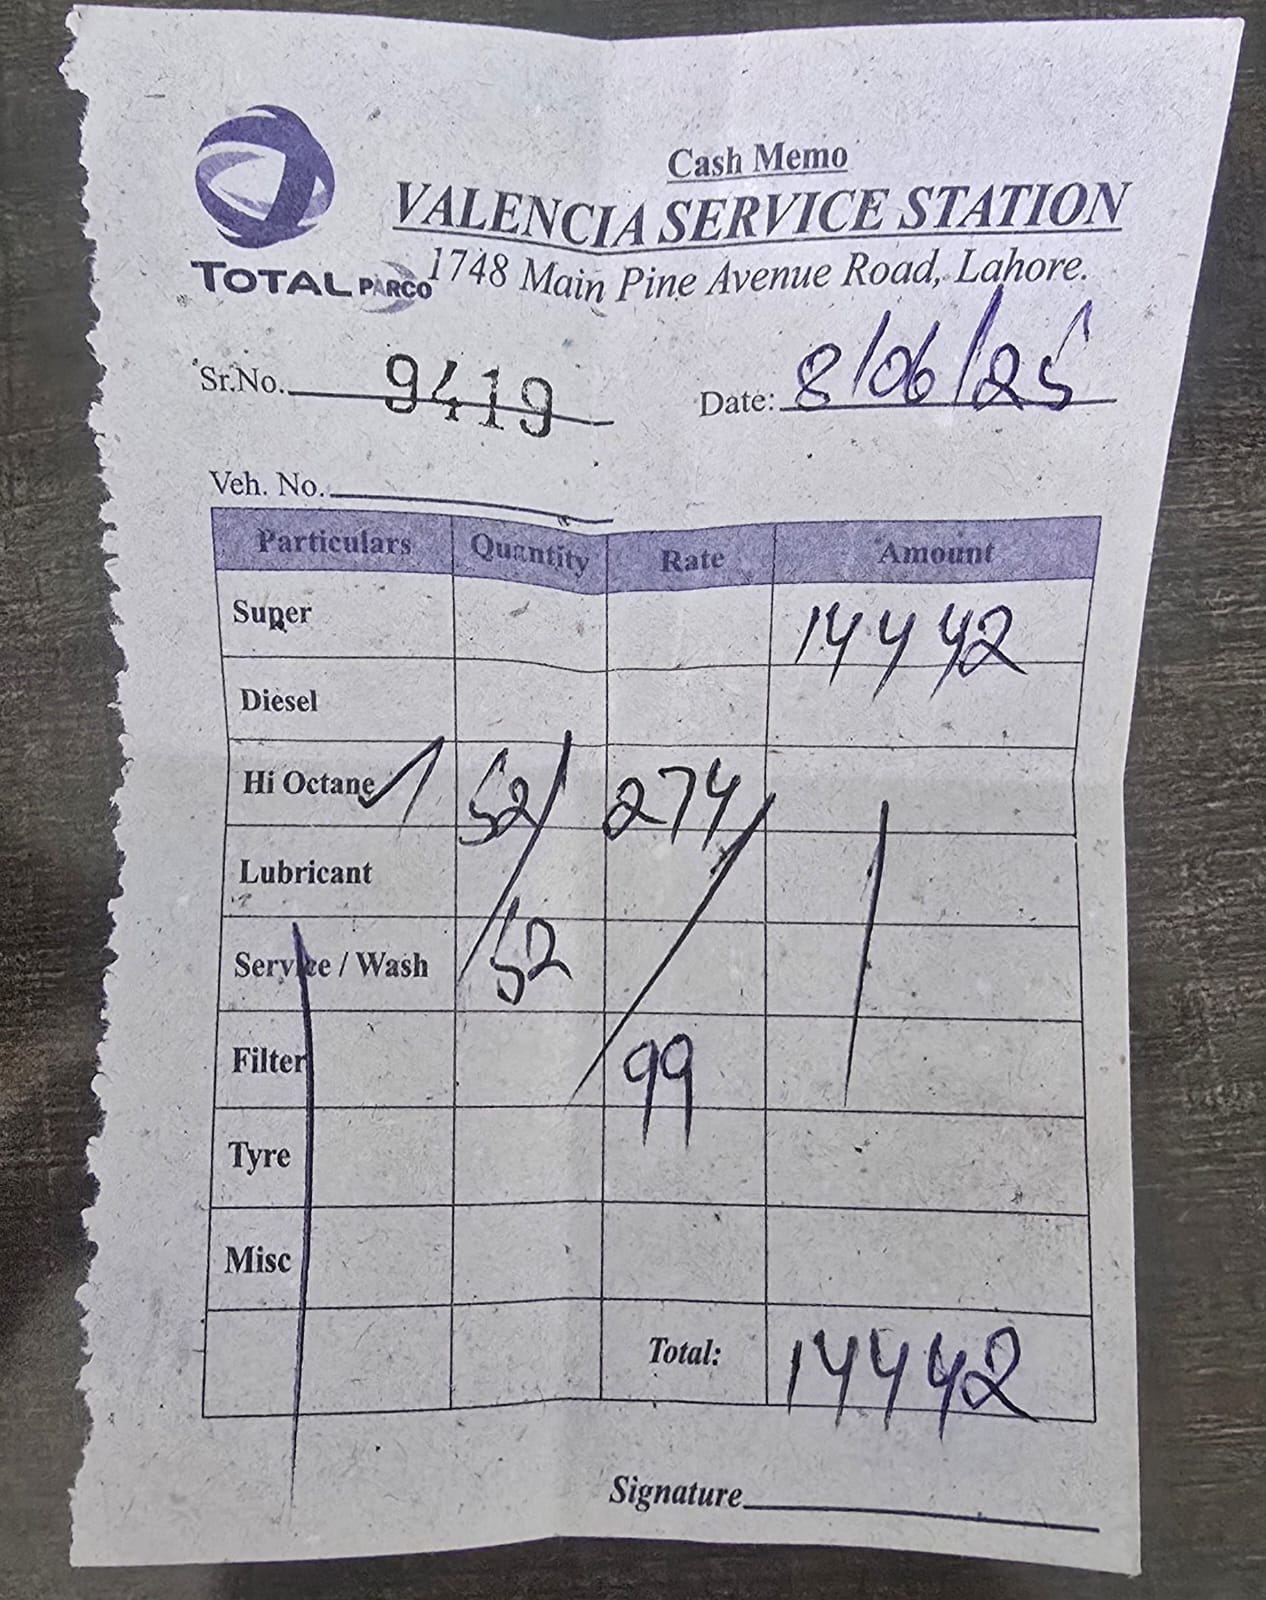 Cash Memo
VALENCIA SERVICE STATION
TOTAL PARCO 1748 Main Pine Avenue Road, Lahore.
Sr.No. 9419 Date: 8/06/25
Veh. No.
Particulars Quantity Rate Amount
Super 14442
Diesel
Hi Octane 52 274
Lubricant
Service / Wash 52
Filter 99
Tyre
Misc
Total: 14442
Signature